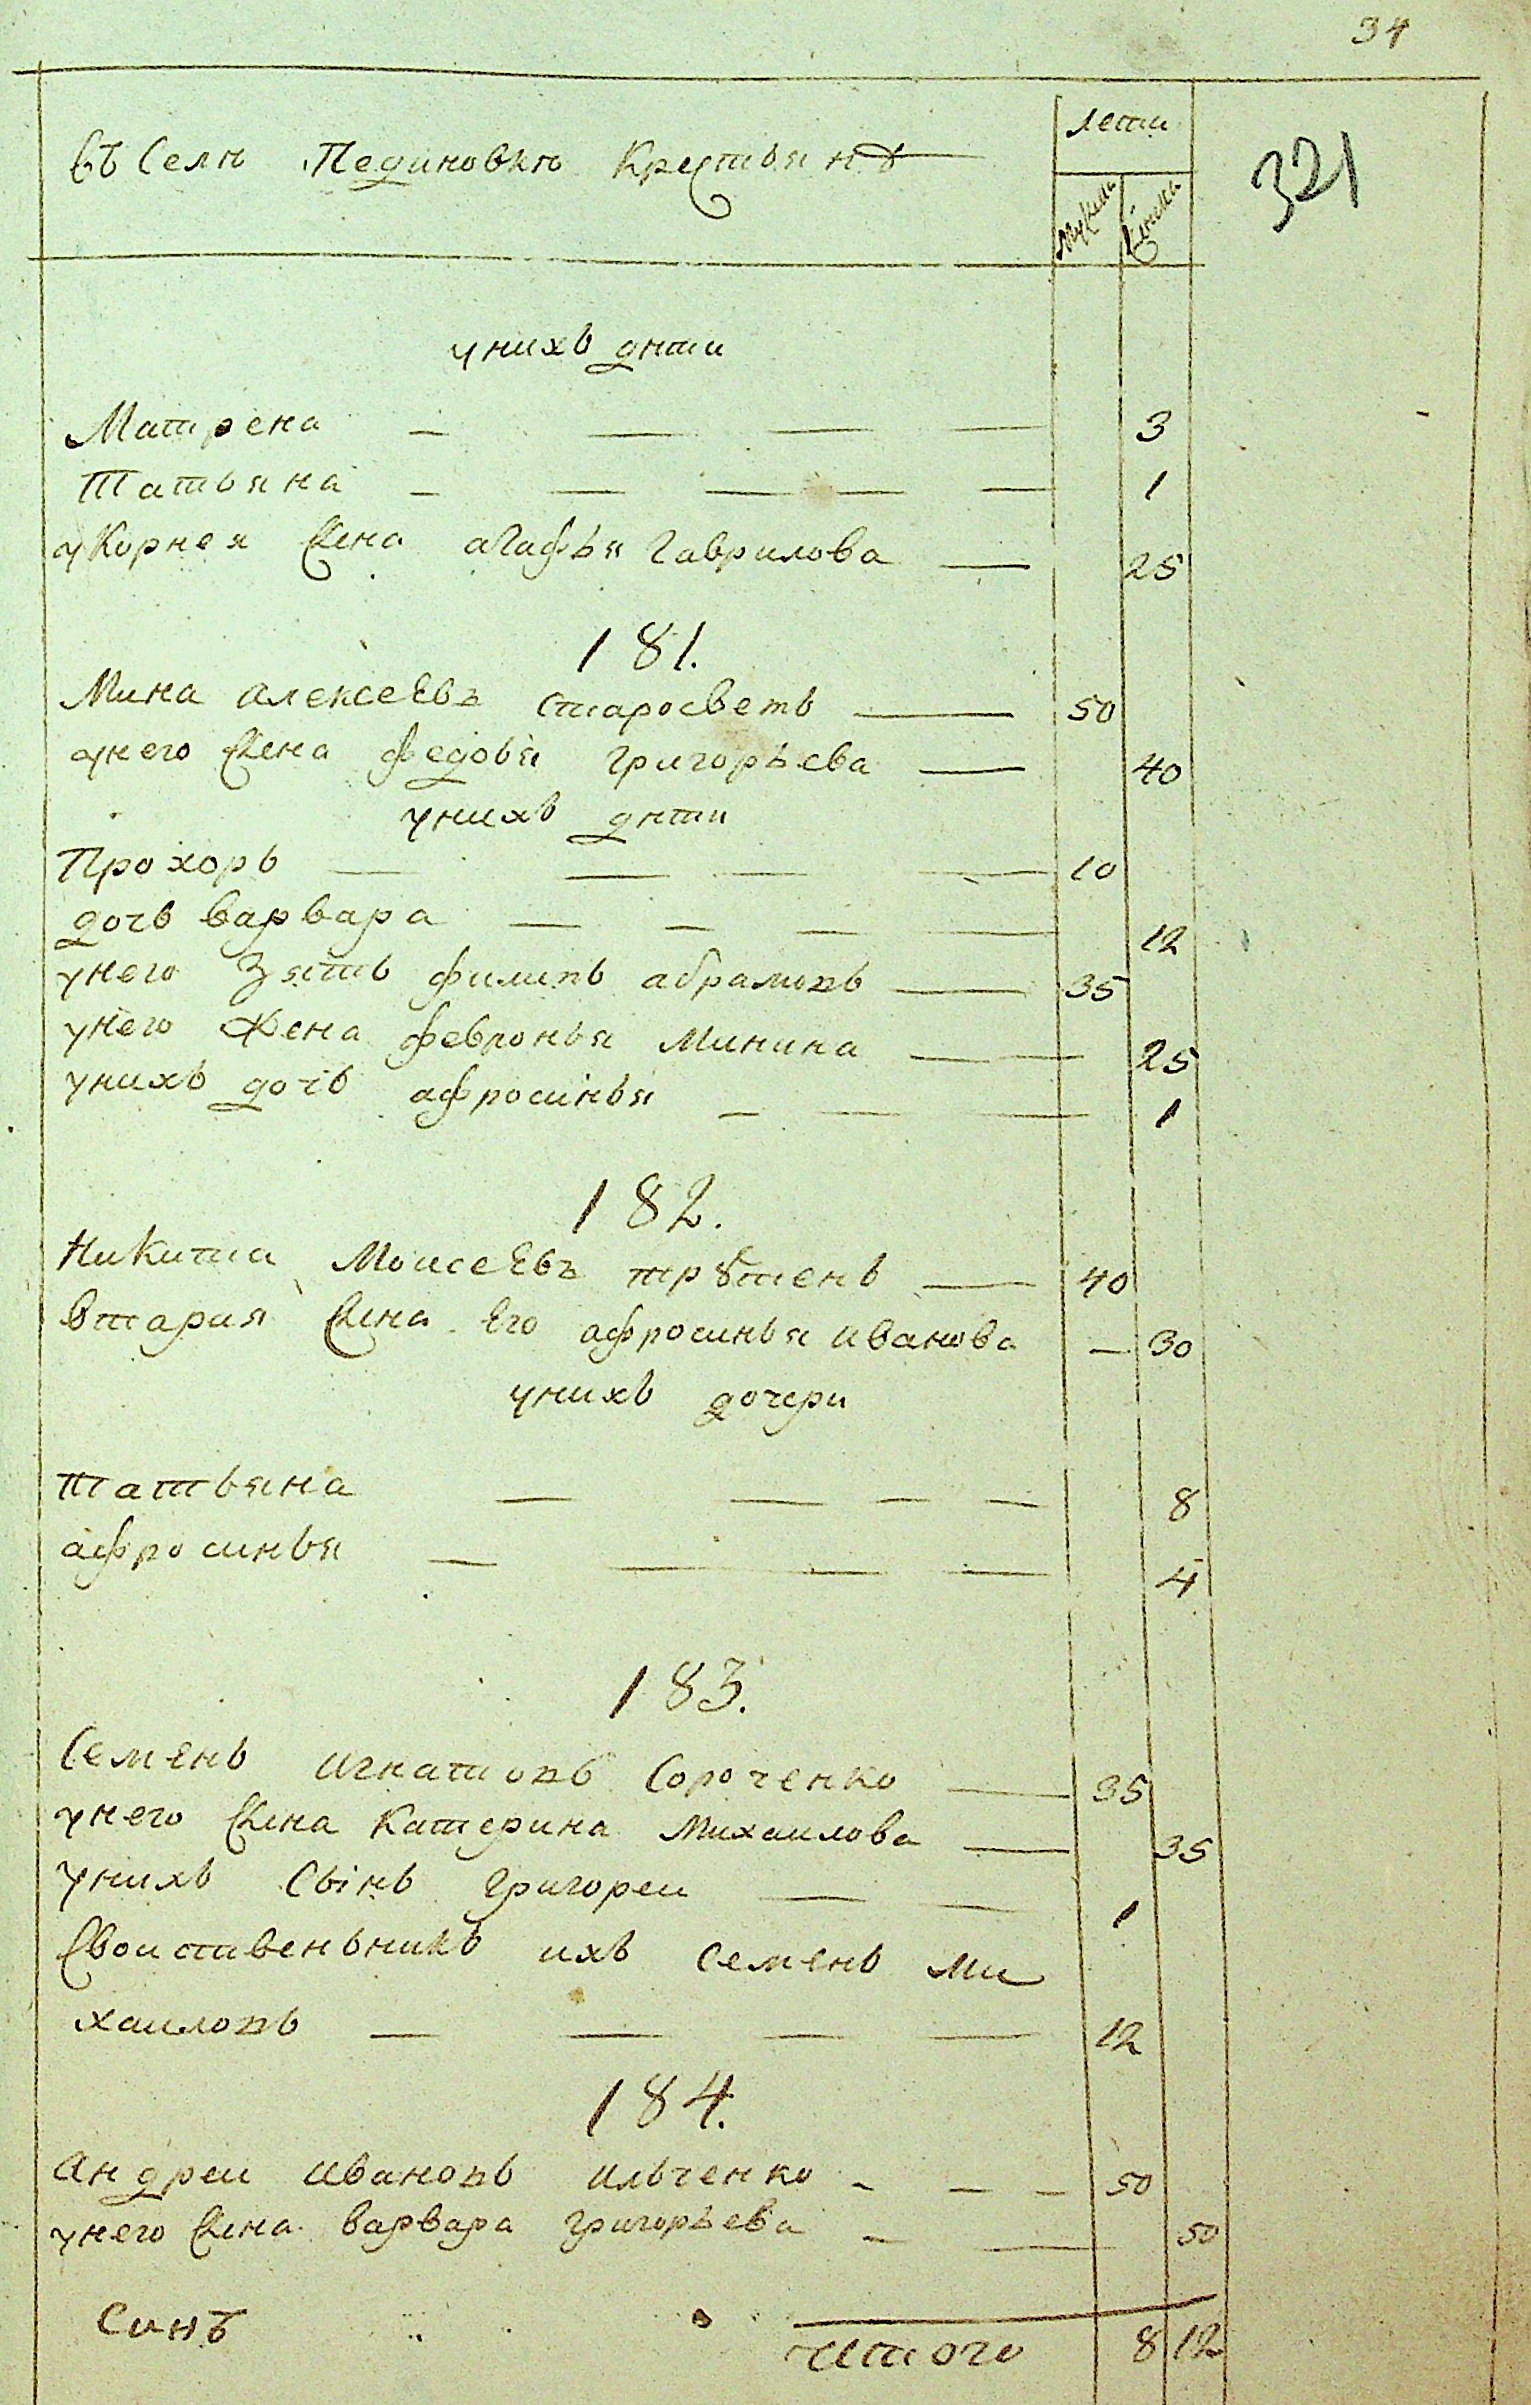 34
въ Селѣ Пединовкѣ Крестьянъ
Лети
Мужска Женска
321
унихъ дѣти
Матрена — — — — 3
Татьяна — — — — — 1
уКорнея Жена агафья Гаврилова — 25
181.
Мина алексеевъ старосветъ — 50
унего Жена федовья григорьева — 40
унихъ дѣти
Прохоръ — — — — 10
дочь варвара — — — — 12
унего Зять филипъ абрамовъ — 35
унего Жена февронья Минина — — 25
унихъ дочь афросинья — — 1
182.
Никита Моисеевъ трȣтень — 40
втарая Жена Его афросинья иванова — 30
унихъ дочери
Татьяна — — — — 8
афросинья — — — — 4
183.
Семенъ игнатовъ Сороченко — 35
унего Жена Катерина Михаилова — 35
унихъ Сынъ григореи — — 1
Своиственьникъ ихъ семенъ Ми
хаиловъ — — — — 12
184.
андреи ивановъ ильченко - — — 50
унего Жена варвара григорьева - — 50
Синъ
итого 8 12